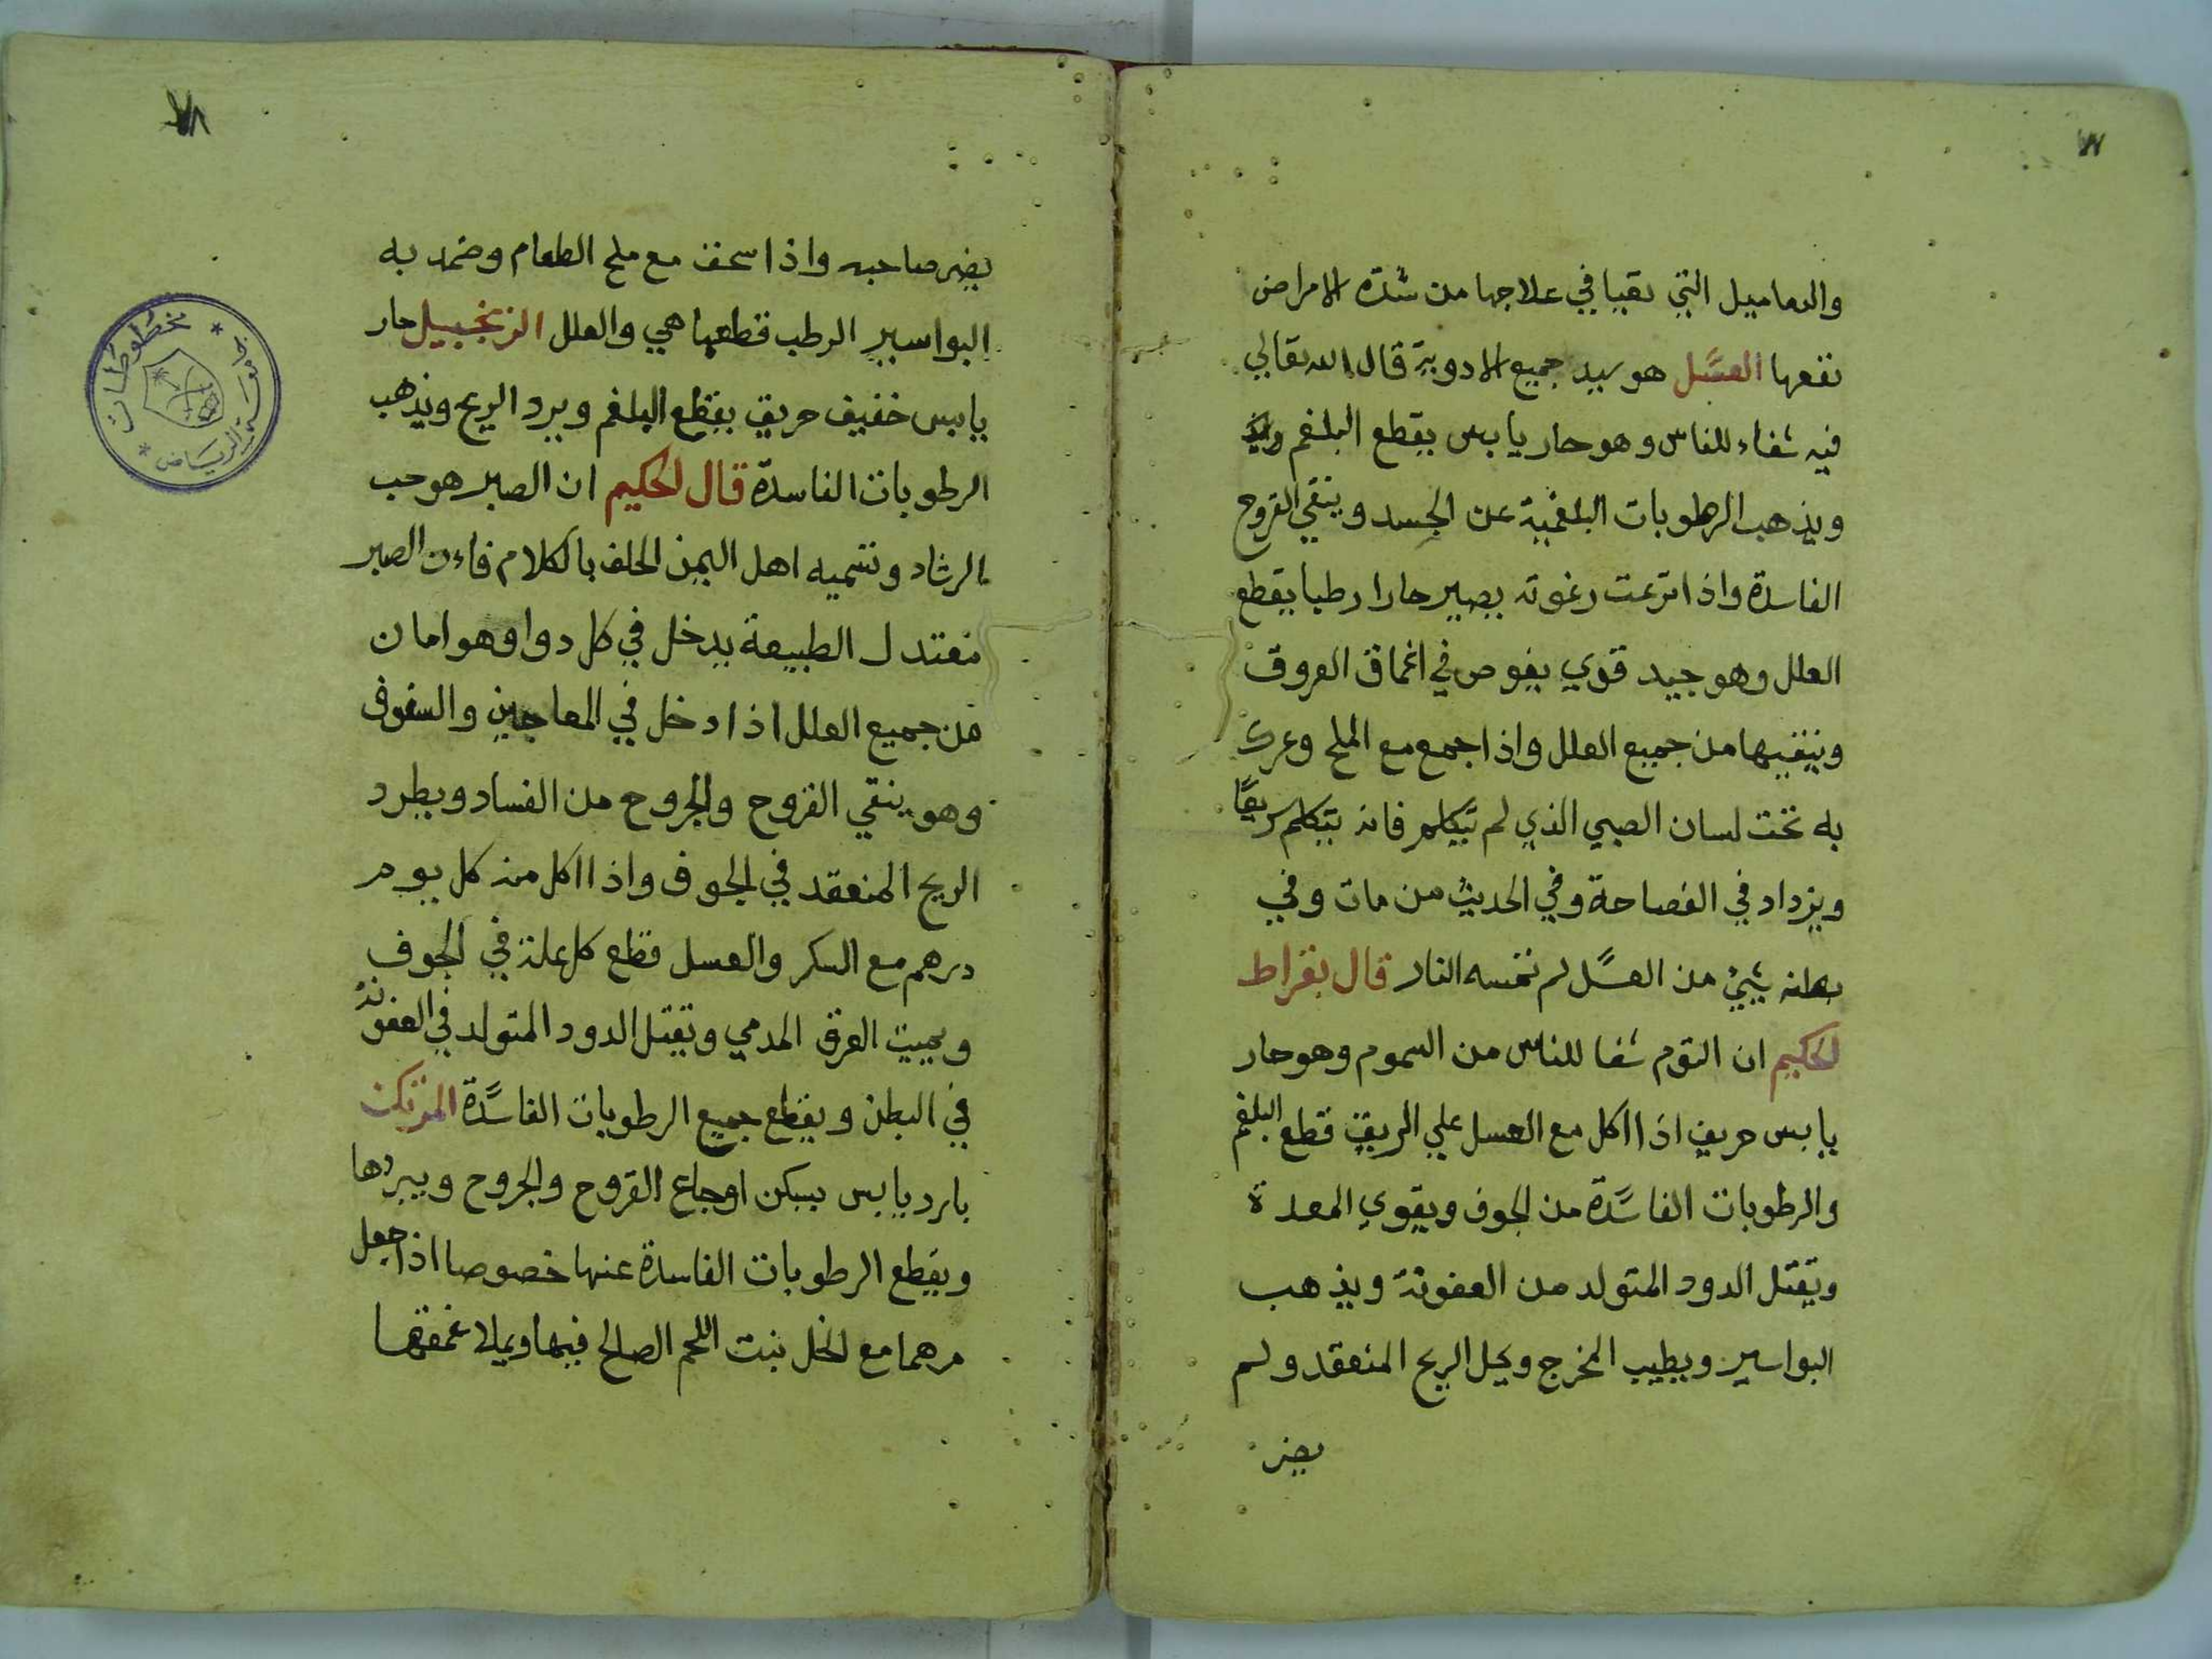 ٧٧
والدماميل التي تعيا في علاجها من شدة الامراض
نفعها العسل هو سيد جميع الادوية قال الله تعالي
فيه شفاء للناس وهو حار يابس يقطع البلغم
ويذهب الرطوبات البلغمية عن الجسد وينقي القروح
الفاسدة واذا نزعت رغوته يصير حارا رطبا يقطع
العلل وهو جيد قوي يغوص في اغماق العروق
وينقيها من جميع العلل واذا جمع مع الملح وعرك
به تحت لسان الصبي الذي لم يتكلم فانه يتكلم سريعًا
ويزداد في الفصاحة وفي الحديث من مات وفي
بطنه شيئ من العسل لم تمسه النار قال بقراط
لحكيم ان الثوم شفا للناس من السموم وهو حار
يابس حريف اذا اكل مع العسل علي الريق قطع البلغم
والرطوبات الفاسدة من الجوف ويقوي المعدة
ويقتل الدود المتولد من العفونة ويذهب
البواسير ويطيب المخرج ويحل الريح المنعقد ولم
يضر
٧٨
يضر صاحبه واذا سحق مع ملح الطعام وضمد به
البواسير الرطب قطعها هي والعلل الزنجبيل حار
يابس خفيف حريق يقطع البلغم ويرد الريح ويذهب
الرطوبات الفاسدة قال لحكيم ان الصبر هو حب
الرشاد وتسميه اهل اليمن الحلف بالكلام فاءن الصبر
معتدل الطبيعة يدخل في كل دوا وهو امان
من جميع العلل اذا دخل في المعاجين والسفوف
وهو ينقي القروح والجروح من الفساد ويطرد
الريح المنعقد في الجوف واذا اكل منه كل يوم
درهم مع السكر والعسل قطع كل علة في الجوف
ويميت العرق المدمي ويقتل الدود المتولد في العفونة
في البطن ويقطع جميع الرطوبات الفاسدة المرتكن
بارد يابس يسكن اوجاع القروح والجروح ويبردها
ويقطع الرطوبات الفاسدة عنها خصوصا اذا جعل
مرهما مع الخل نبت اللحم الصالح فيها ويملا غمقها
مخطوطات
الرياض